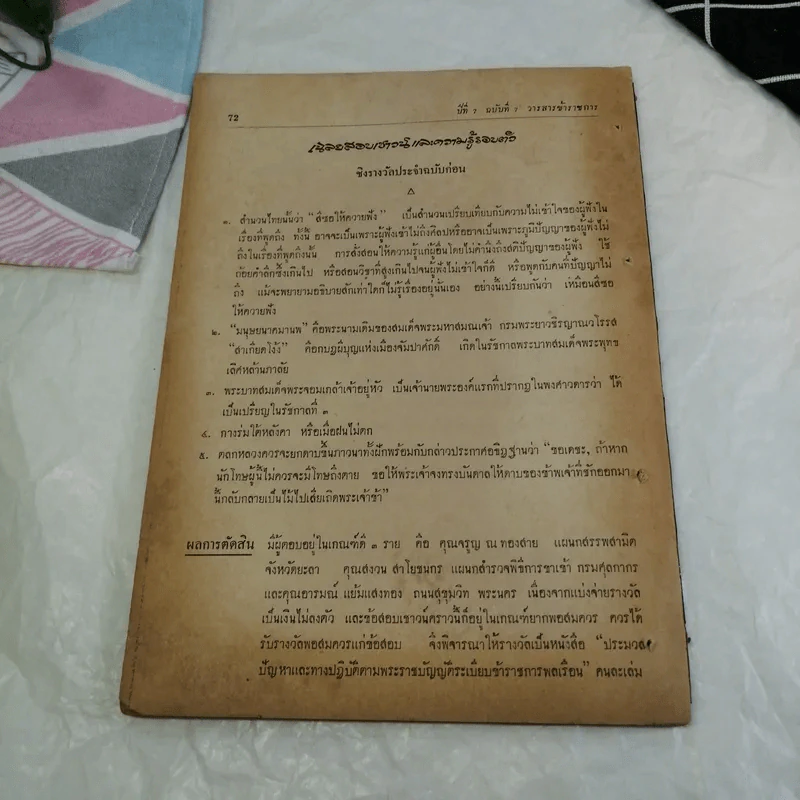 72
ปีที่ 7 ฉบับที่ 7 วารสารข้าราชการ
เฉลยสอบเชาวน์และความรู้รอบตัว
ชิงรางวัลประจำฉบับก่อน
๑. สำนวนไทยนั้นว่า “สีซอให้ควายฟัง” เป็นสำนวนเปรียบเทียบกับความไม่เข้าใจของผู้ฟังใน
เรื่องที่พูดถึง ทั้งนี้ อาจจะเป็นเพราะผู้ฟังเข้าไม่ถึงศิลปหรืออาจเป็นเพราะภูมิปัญญาของผู้ฟังไม่
ถึงในเรื่องที่พูดถึงนั้น การสั่งสอนให้ความรู้แก่ผู้อื่นโดยไม่คำนึงถึงสติปัญญาของผู้ฟัง ใช้
ถ้อยคำลึกซึ้งเกินไป หรือสอนวิชาที่สูงเกินไปจนผู้ฟังไม่เข้าใจก็ดี หรือพูดกับคนที่ปัญญาไม่
ถึง แม้จะพยายามอธิบายสักเท่าใดก็ไม่รู้เรื่องอยู่นั่นเอง อย่างนี้เปรียบกันว่า เหมือนสีซอ
ให้ควายฟัง
๒. “มนุษยนาคมานพ” คือพระนามเดิมของสมเด็จพระมหาสมณเจ้า กรมพระยาวชิรญาณวโรรส
“สาเกียดโง้ง” คือกบฏผีบุญแห่งเมืองจัมปาศักดิ์ เกิดในรัชกาลพระบาทสมเด็จพระพุทธ
เลิศหล้านภาลัย
๓. พระบาทสมเด็จพระจอมเกล้าเจ้าอยู่หัว เป็นเจ้านายพระองค์แรกที่ปรากฏในพงศาวดารว่า ได้
เป็นเปรียญในรัชกาลที่ ๓
๔. กางร่มใต้หลังคา หรือเมื่อฝนไม่ตก
๕. ตลกหลวงควรจะยกดาบขึ้นภาวนาทั้งฝักพร้อมกับกล่าวประกาศอธิฐานว่า “ขอเดชะ, ถ้าหาก
นักโทษผู้นี้ไม่ควรจะมีโทษถึงตาย ขอให้พระเจ้าจงทรงบันดาลให้ดาบของข้าพเจ้าที่ชักออกมา
นี้กลับกลายเป็นไม้ไปเสียเถิดพระเจ้าข้า”
ผลการตัดสิน มีผู้ตอบอยู่ในเกณฑ์ดี ๓ ราย คือ คุณจรูญ ณ ทองสาย แผนกสรรพสามิต
จังหวัดยะลา คุณสงวน สาโยชนกร แผนกสำรวจพิธีการขาเข้า กรมศุลกากร
และคุณอารมณ์ แย้มแสงทอง ถนนสุขุมวิท พระนคร เนื่องจากแบ่งจ่ายรางวัล
เป็นเงินไม่ลงตัว และข้อสอบเชาวน์คราวนี้ก็อยู่ในเกณฑ์ยากพอสมควร ควรได้
รับรางวัลพอสมควรแก่ข้อสอบ จึงพิจารณาให้รางวัลเป็นหนังสือ “ประมวล
ปัญหาและทางปฏิบัติตามพระราชบัญญัติระเบียบข้าราชการพลเรือน” คนละเล่ม